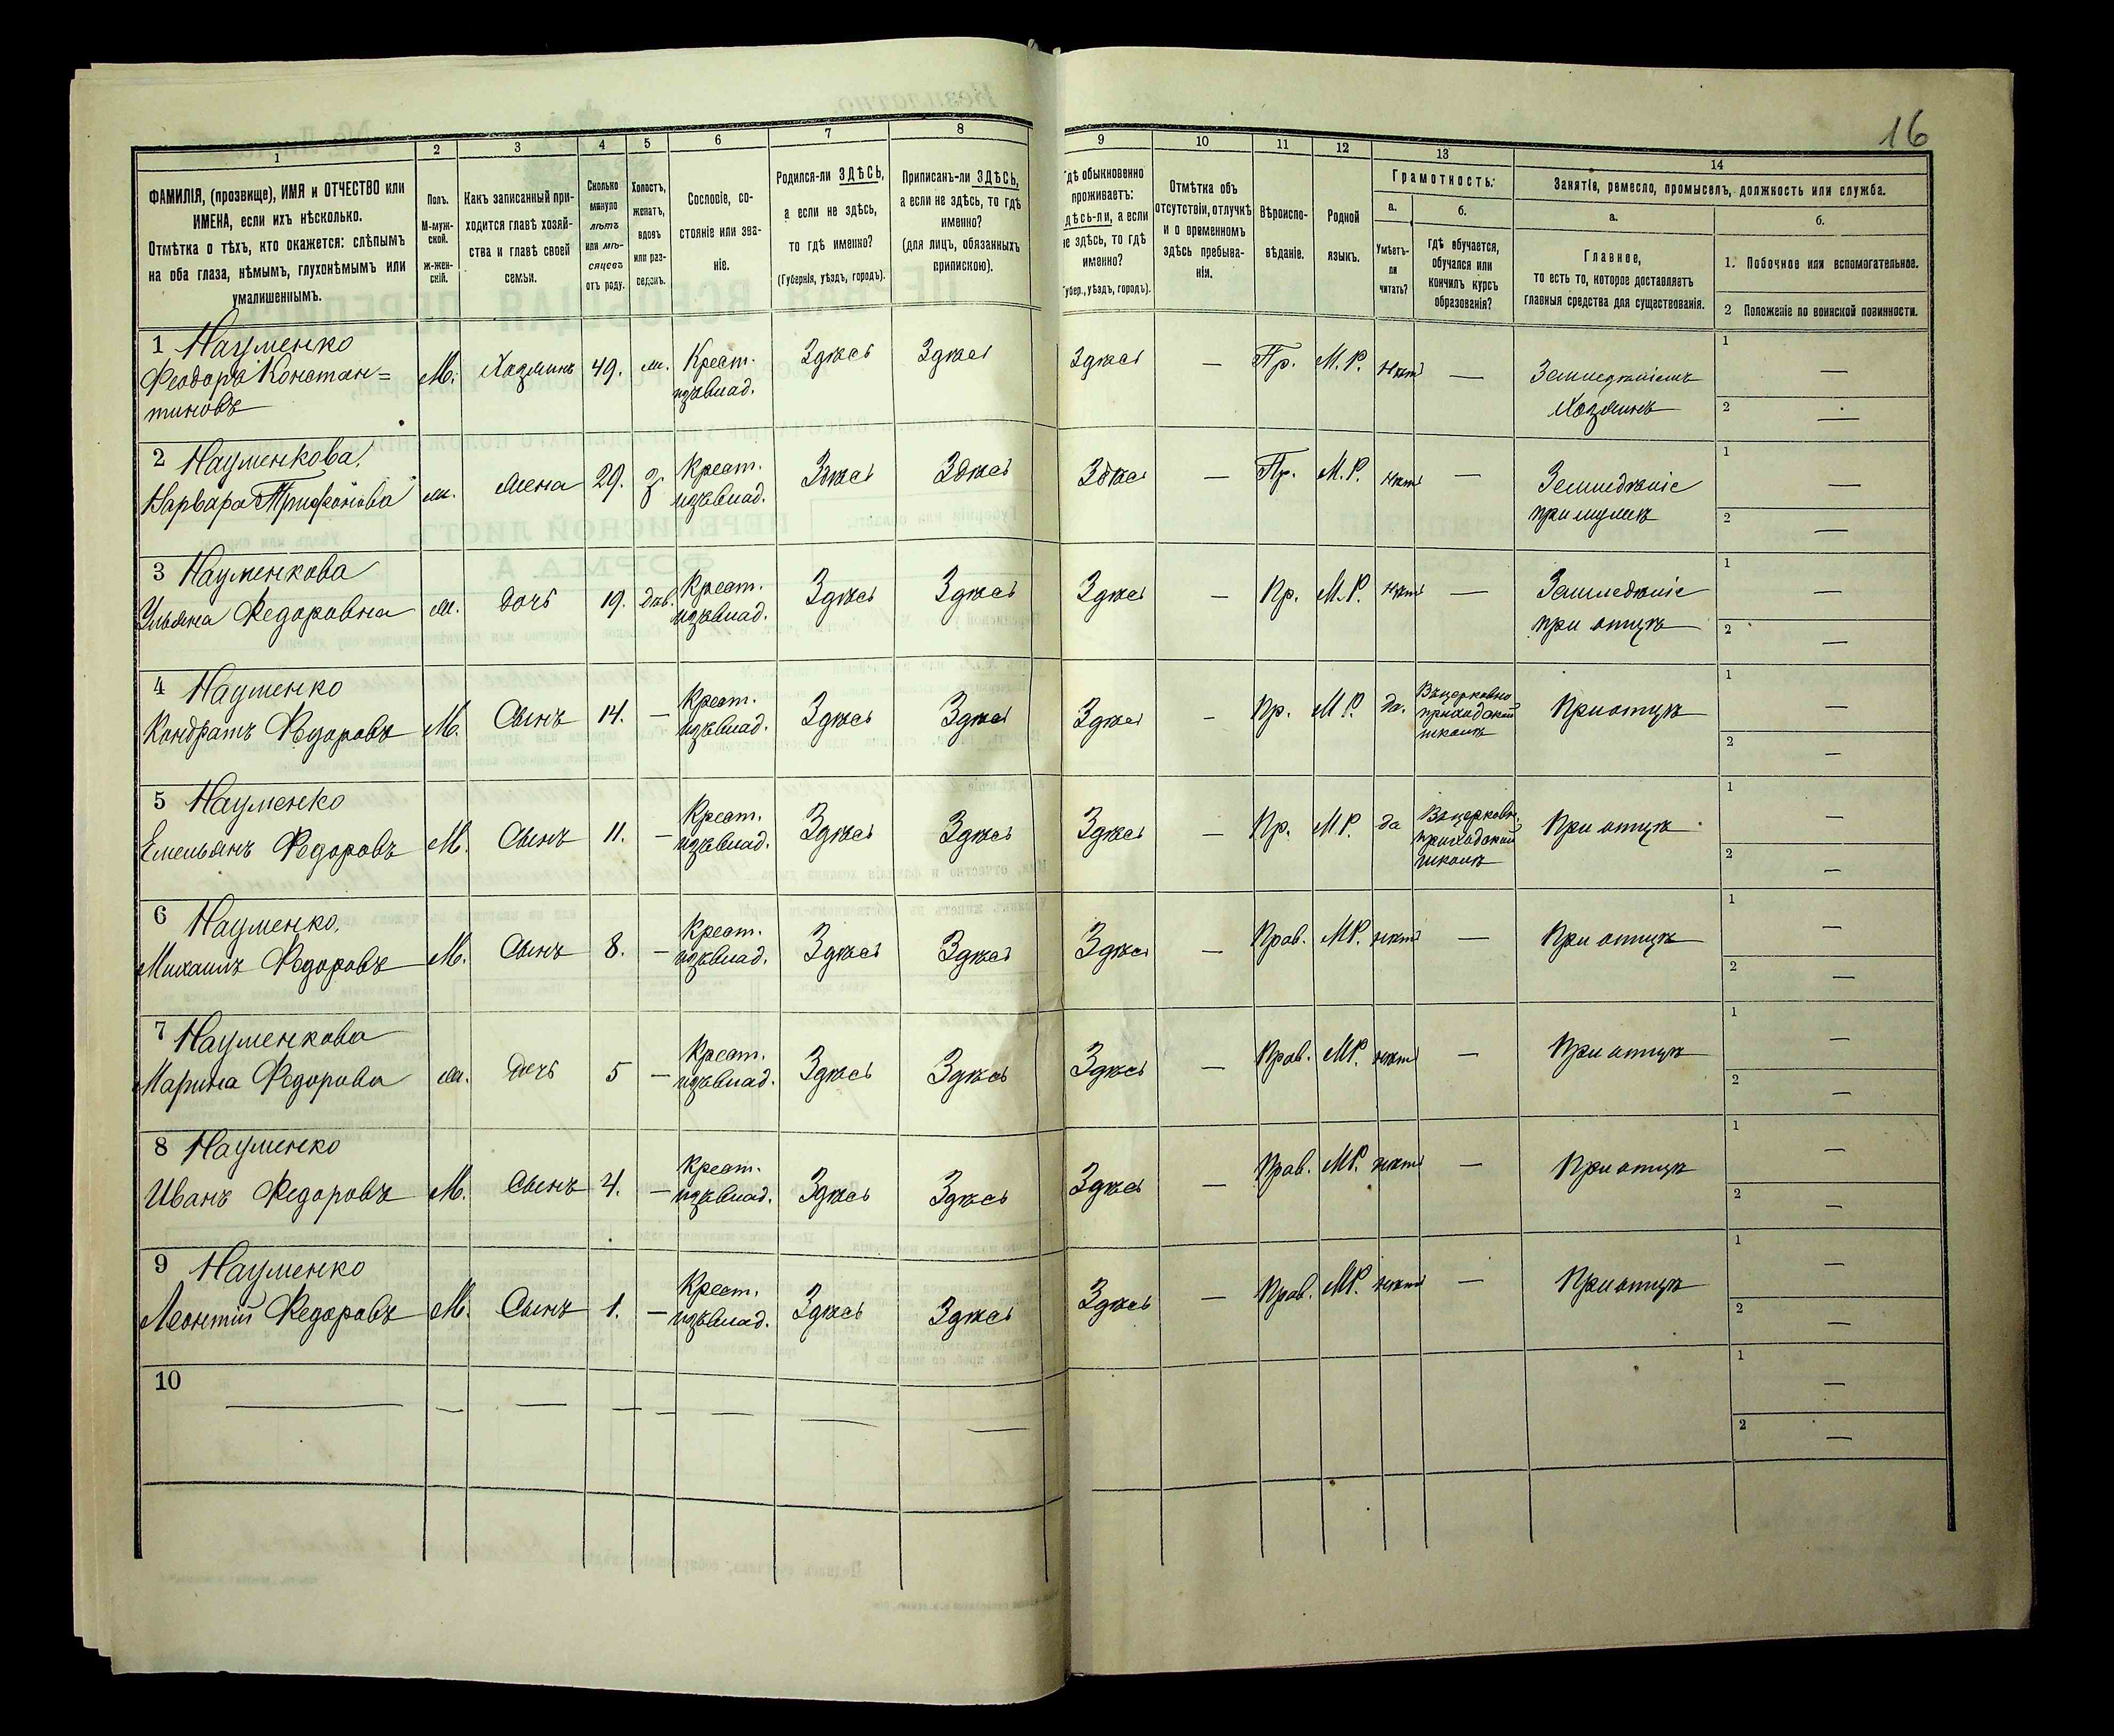 16
1
2
3
4
5
6
7
8
9
10
11
12
13
14
ФАМИЛІЯ, (прозвище), ИМЯ и ОТЧЕСТВО или
ИМЕНА, если ихъ нѣсколько.
Отмѣтка о тѣхъ, кто окажется: слѣпымъ
на оба глаза, нѣмымъ, глухонѣмымъ или
умалишеннымъ.
Полъ.
М-муж-
ской.
ж-жен-
скій.
Какъ записанный при-
ходится главѣ хозяй-
ства и главѣ своей
семьи.
Сколько
минуло
лѣтъ
или мѣ-
сяцевъ
отъ роду.
Холостъ,
женатъ,
вдовъ
или раз-
веденъ.
Сословіе, со-
стояніе или зва-
ніе.
Родился-ли ЗДѢСЬ,
а если не здѣсь,
то гдѣ именно?
(Губернія, уѣздъ, городъ).
Приписанъ-ли ЗДѢСЬ,
а если не здѣсь, то гдѣ
именно?
(для лицъ, обязанныхъ
припискою).
гдѣ обыкновенно
проживаетъ:
здѣсь-ли, а если
не здѣсь, то гдѣ
именно?
Губер., уѣздъ, городъ).
Отмѣтка объ
отсутствіи, отлучкѣ
и о временномъ
здѣсь пребыва-
ніи.
Вѣроиспо-
вѣданіе.
Родной
языкъ.
Грамотность.
а.
Умѣетъ-
ли
читать?
б.
гдѣ обучается,
обучался или
кончилъ курсъ
образованія?
Занятіе, ремесло, промыселъ, должность или служба.
а.
Главное,
то есть то, которое доставляетъ
главныя средства для существованія.
б.
1. Побочное или вспомогательное.
2 Положеніе по воинской повинности.
1 Науменко
Феодоръ Констан=
тиновъ
М. Хозяинъ 49. ж. Крест.
изъ влад.
Здѣсь Здѣсь Здѣсь — Пр. М.Р. нѣтъ — Земледѣліемъ
Хозяинъ
1 —
2 —
2 Науменкова,
Варвара Трифонова
ж. жена 29. з. Крест.
изъ влад.
Здѣсь Здѣсь Здѣсь — Пр. М.Р. нѣтъ — Земледѣліе
при мужѣ
1 —
2 —
3 Науменкова
Ульяна Федоровна
ж. дочь 19. дѣв. Крест.
изъ влад.
Здѣсь Здѣсь Здѣсь — Пр. М.Р. нѣтъ — Земледѣліе
при отцѣ
1 —
2 —
4 Науменко
Кондратъ Федоровъ
М. Сынъ 14. — Крест.
изъ влад.
Здѣсь Здѣсь Здѣсь — Пр. М.Р. да. Въ церковно
приходской
школѣ
При отцѣ
1 —
2 —
5 Науменко
Емельянъ Федоровъ
М. Сынъ 11. — Крест.
изъ влад.
Здѣсь Здѣсь Здѣсь — Пр. М.Р. да Въ церковн.
приходской
школѣ
При отцѣ
1 —
2 —
6 Науменко.
Михаилъ Федоровъ
М. Сынъ 8. — Крест.
изъ влад.
Здѣсь Здѣсь Здѣсь — Прав. М.Р. нѣтъ — При отцѣ
1 —
2 —
7 Науменкова
Марина Федорова
ж. дочь 5 — Крест.
изъ влад.
Здѣсь Здѣсь Здѣсь — Прав. М.Р. нѣтъ — При отцѣ
1 —
2 —
8 Науменко
Иванъ Федоровъ
М. Сынъ 4. — Крест.
изъ влад.
Здѣсь Здѣсь Здѣсь — Прав. М.Р. нѣтъ — При отцѣ
1 —
2 —
9 Науменко
Леонтій Федоровъ
М. Сынъ 1. — Крест.
изъ влад.
Здѣсь Здѣсь Здѣсь — Прав. М.Р. нѣтъ — При отцѣ
1 —
2 —
10
1 —
2 —